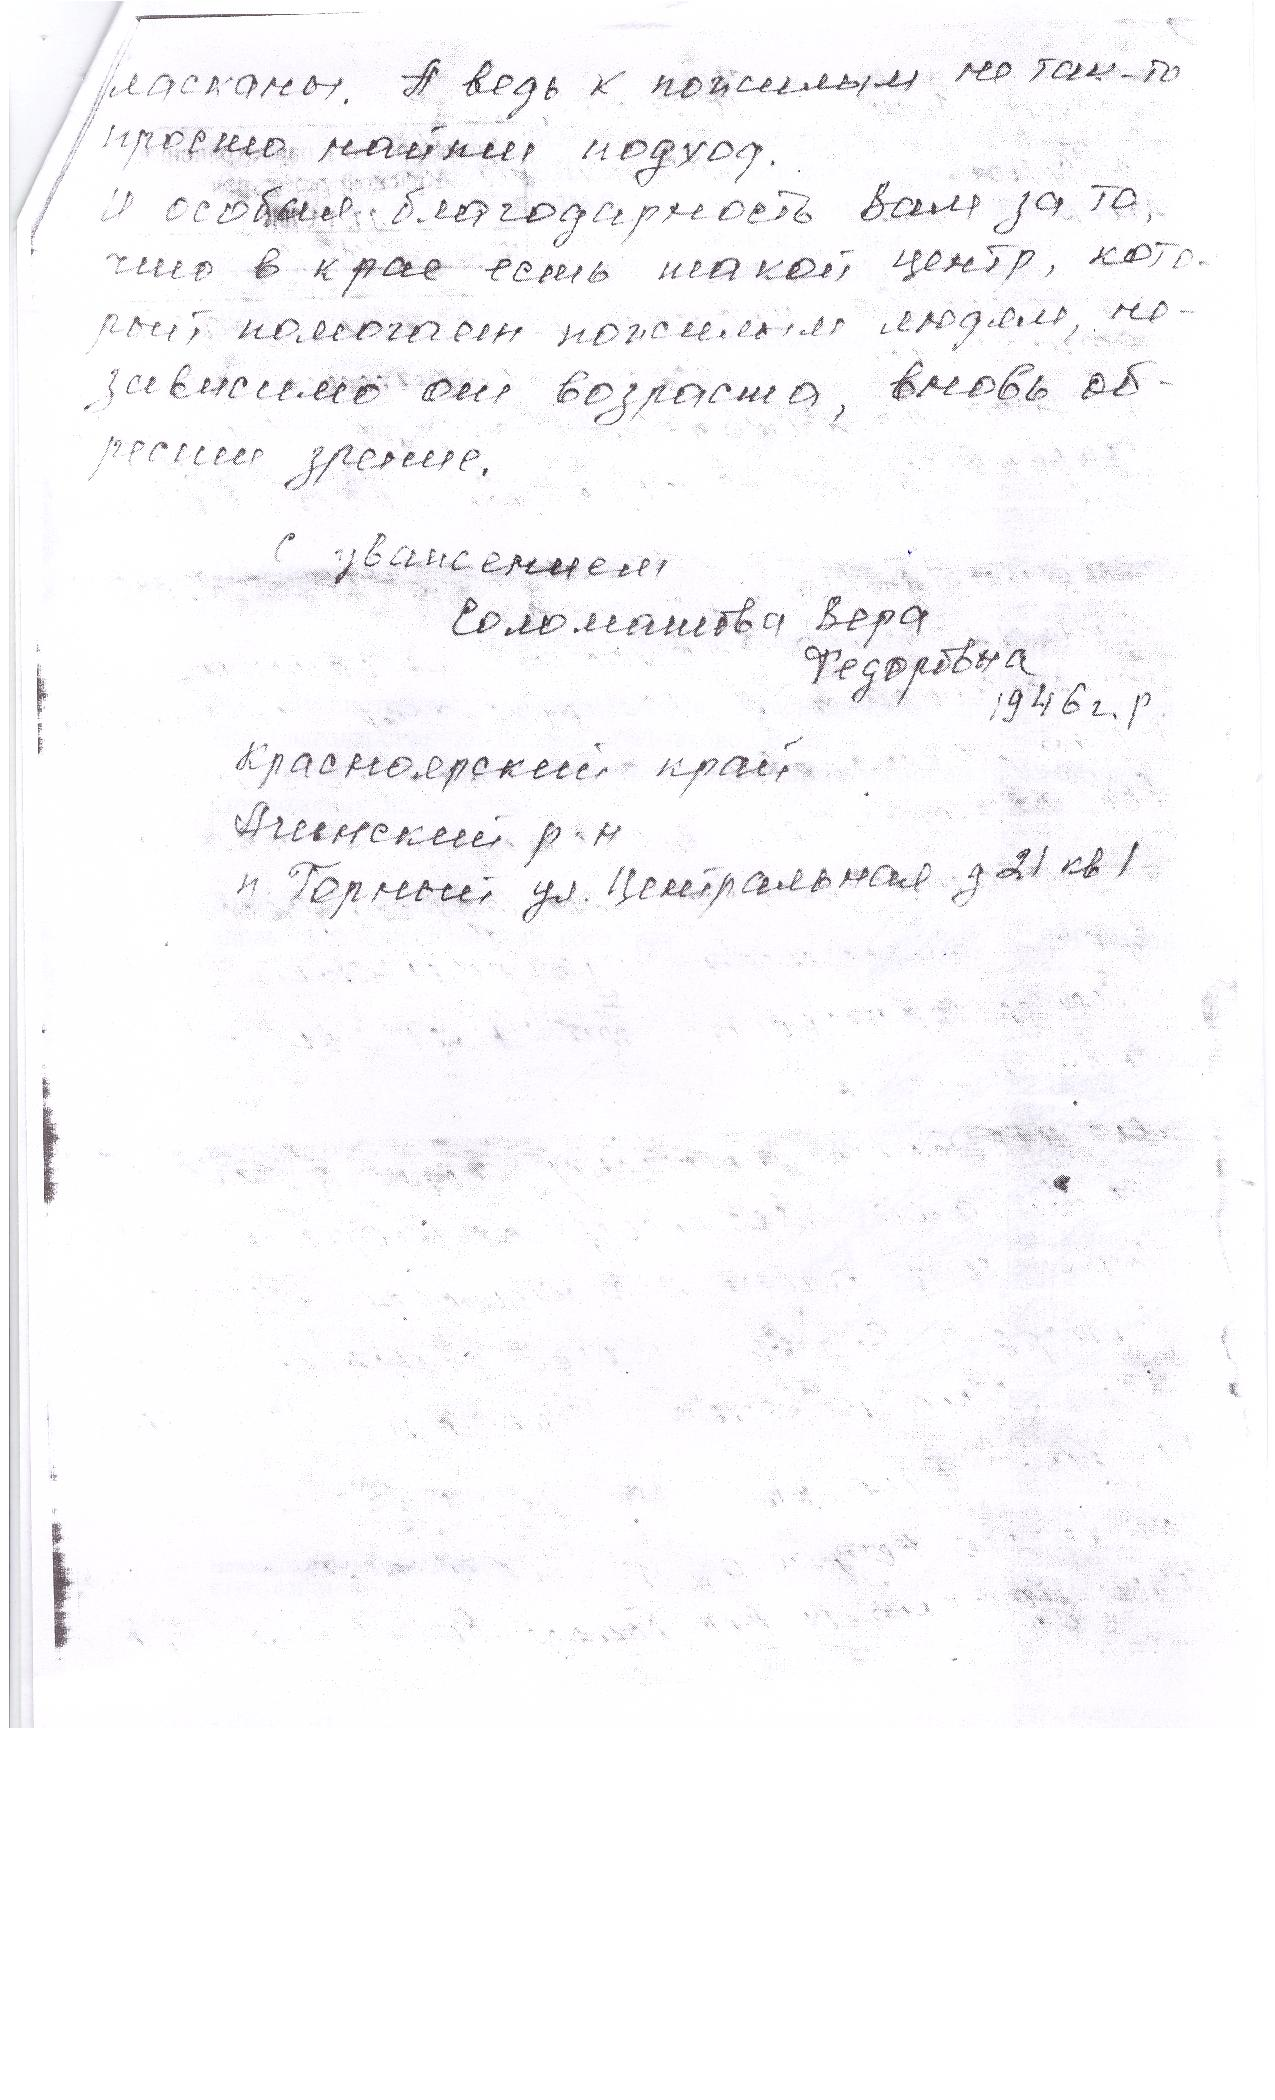 ласканы. А ведь к пожилым не так-то
просто найти подход.
И особая благодарность Вам за то,
что в крае есть такой центр, кото-
рый помогает пожилым людям, не-
зависимо от возраста, вновь об-
рести зрение.
С уважением
Соломатова Вера
Федоровна
1946 г. р
Красноярский край
Ачинский р-н
п Горный ул. Центральная д 21 кв 1